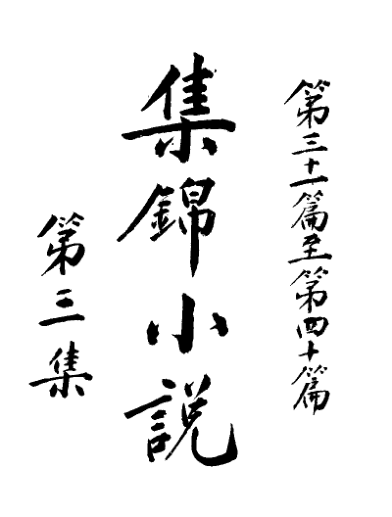 第三十一篇至第四十篇
集錦小説
第三集